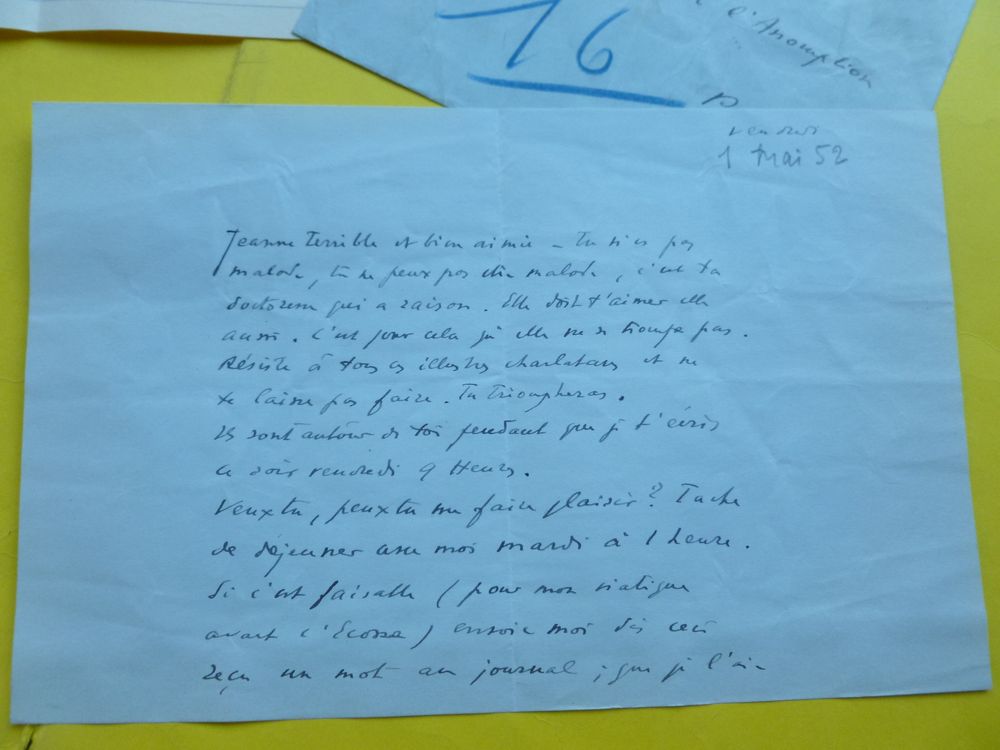 16
l'Assomption
P
vendredi
1 Mai 52
Jeanne terrible et bien aimée - tu n'es pas
malade, tu ne peux pas être malade, c'est ta
doctoresse qui a raison. Elle doit t'aimer elle
aussi. C'est pour cela qu'elle ne se trompe pas.
Résiste à tous ces illustres charlatans et ne
te laisse pas faire. Tu triompheras.
Ils sont autour de toi pendant que je t'écris
ce soir vendredi 9 Heures.
Veux tu, peux tu me faire plaisir ? Tache
de déjeuner avec moi mardi à 1 heure.
Si c'est faisable (pour mon viatique
avant l'Ecosse) envoie moi dès ceci
reçu un mot au journal ; que je l'ai-